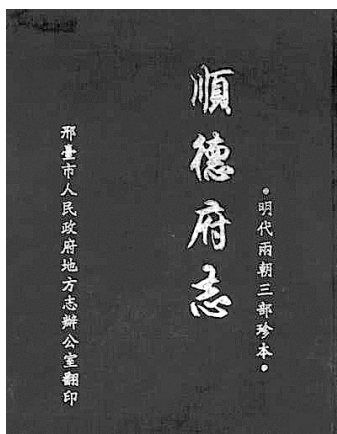 •明代兩朝三部珍本•
順德府志
邢臺市人民政府地方志辦公室翻印